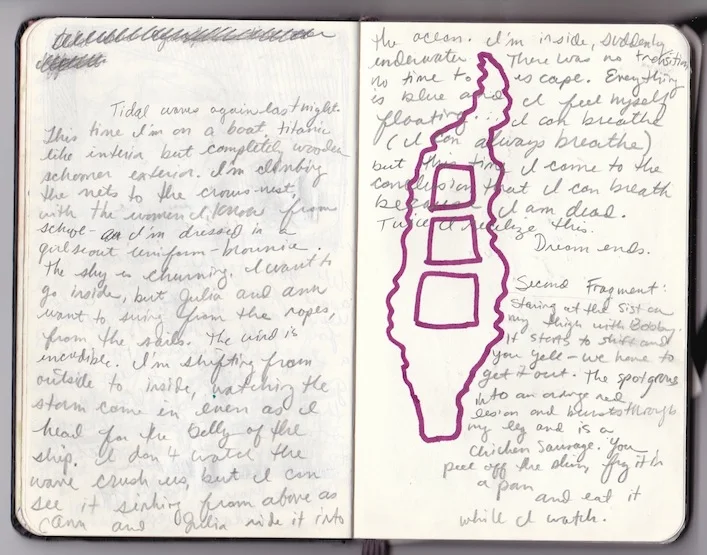 Tidal waves again last night.
This time I'm on a boat, titanic
like interior but completely wooden
schooner exterior. I'm climbing
the nets to the crows nest,
with the women I know from
school - I'm dressed in a
girlscout uniform - brownie.
The sky is churning. I want to
go inside, but Julia and Ann
want to swing from the ropes,
from the sails. The wind is
incredible. I'm shifting from
outside to inside, watching the
storm come in even as I
head for the belly of the
ship. I don't watch the
wave crush us, but I can
see it sinking from above as
Ann and Julia ride it into
the ocean. I'm inside, suddenly
underwater. There was no transition
no time to escape. Everything
is blue and I feel myself
floating... I can breathe
(I can always breathe)
but this time I come to the
conclusion that I can breath
because I am dead.
Twice I realize this.
Dream ends.
Second Fragment:
Staring at the sist on
my thigh with Bobby.
It starts to shift and
you yell - we have to
get it out. The spot grows
into an orange red
lesion and bursts through
my leg and is a
chicken sausage. You
peel off the skin, fry it in
a pan
and eat it
while I watch.